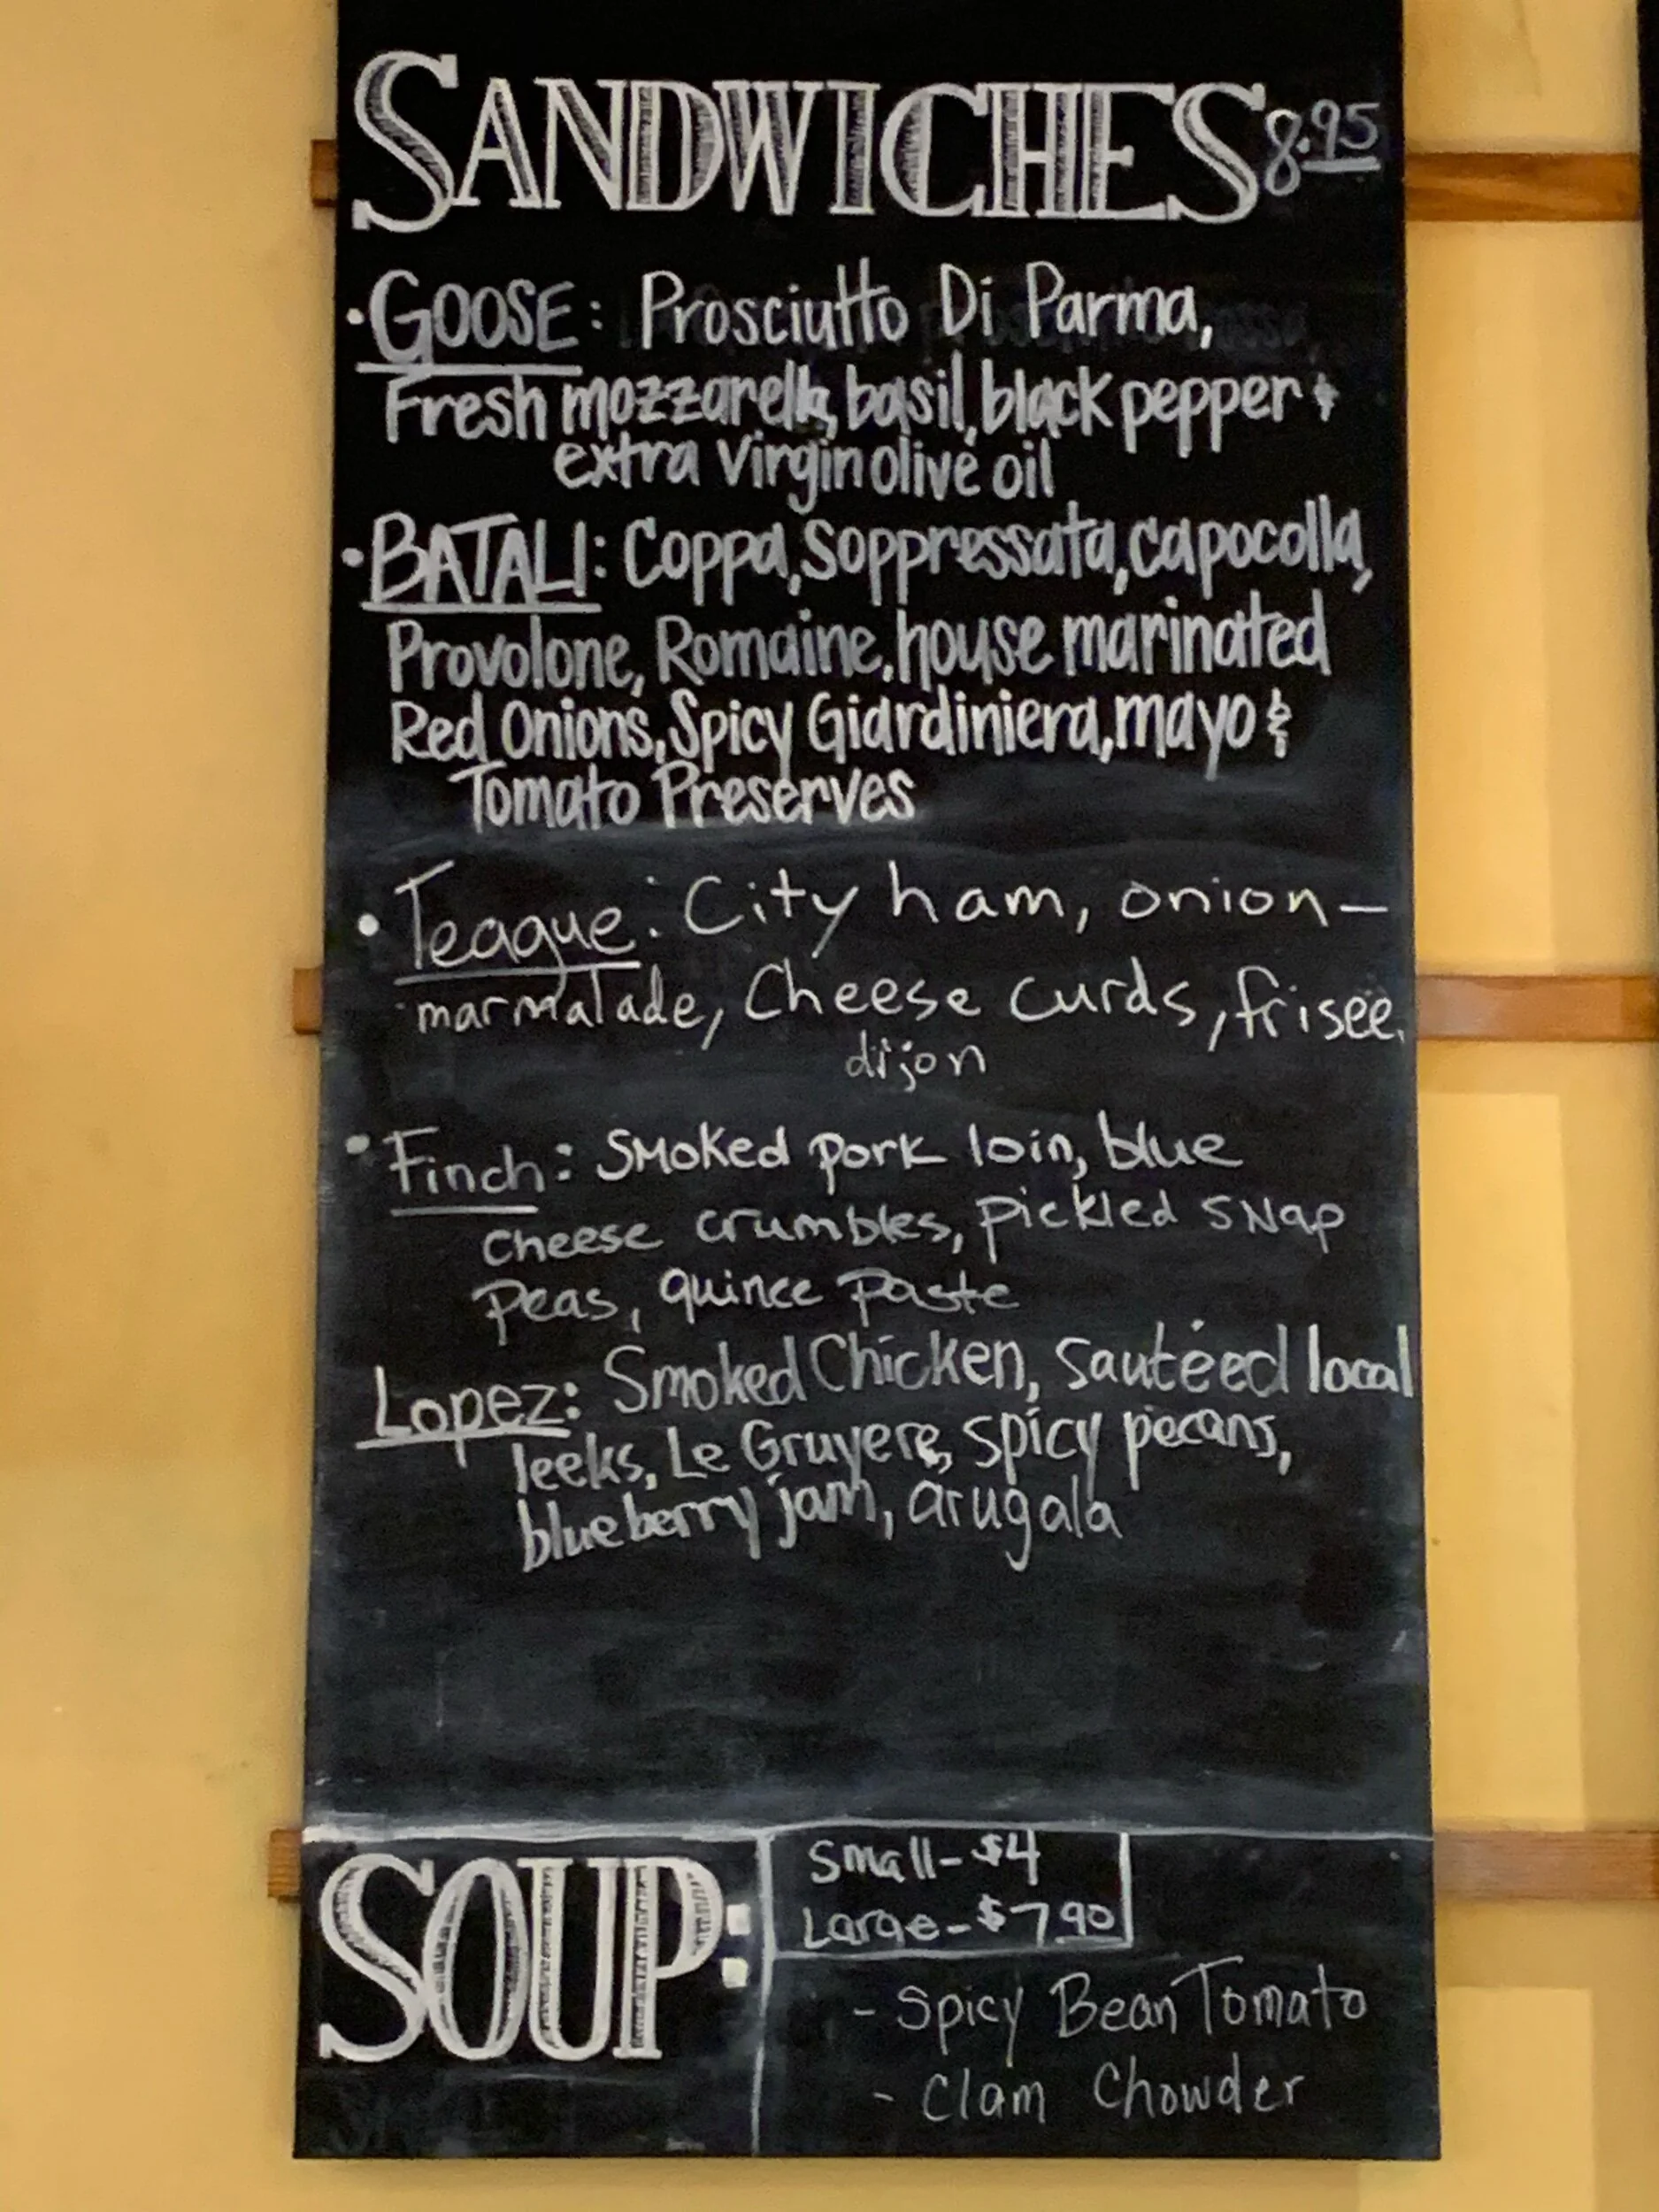 SANDWICHES 8.95
• GOOSE: Prosciutto Di Parma,
Fresh mozzarella, basil, black pepper +
extra virgin olive oil
• BATALI: Coppa, Soppressata, capocolla,
Provolone, Romaine, house marinated
Red Onions, Spicy Giardiniera, mayo &
Tomato Preserves
• Teague: City ham, onion-
marmalade, Cheese curds, friseé,
dijon
• Finch: Smoked pork loin, blue
cheese crumbles, pickled snap
peas, quince paste
Lopez: Smoked Chicken, sautéed local
leeks, Le Gruyere, spicy pecans,
blueberry jam, arugala
SOUP:
Small - $4
Large - $7.90
- Spicy Bean Tomato
- Clam Chowder